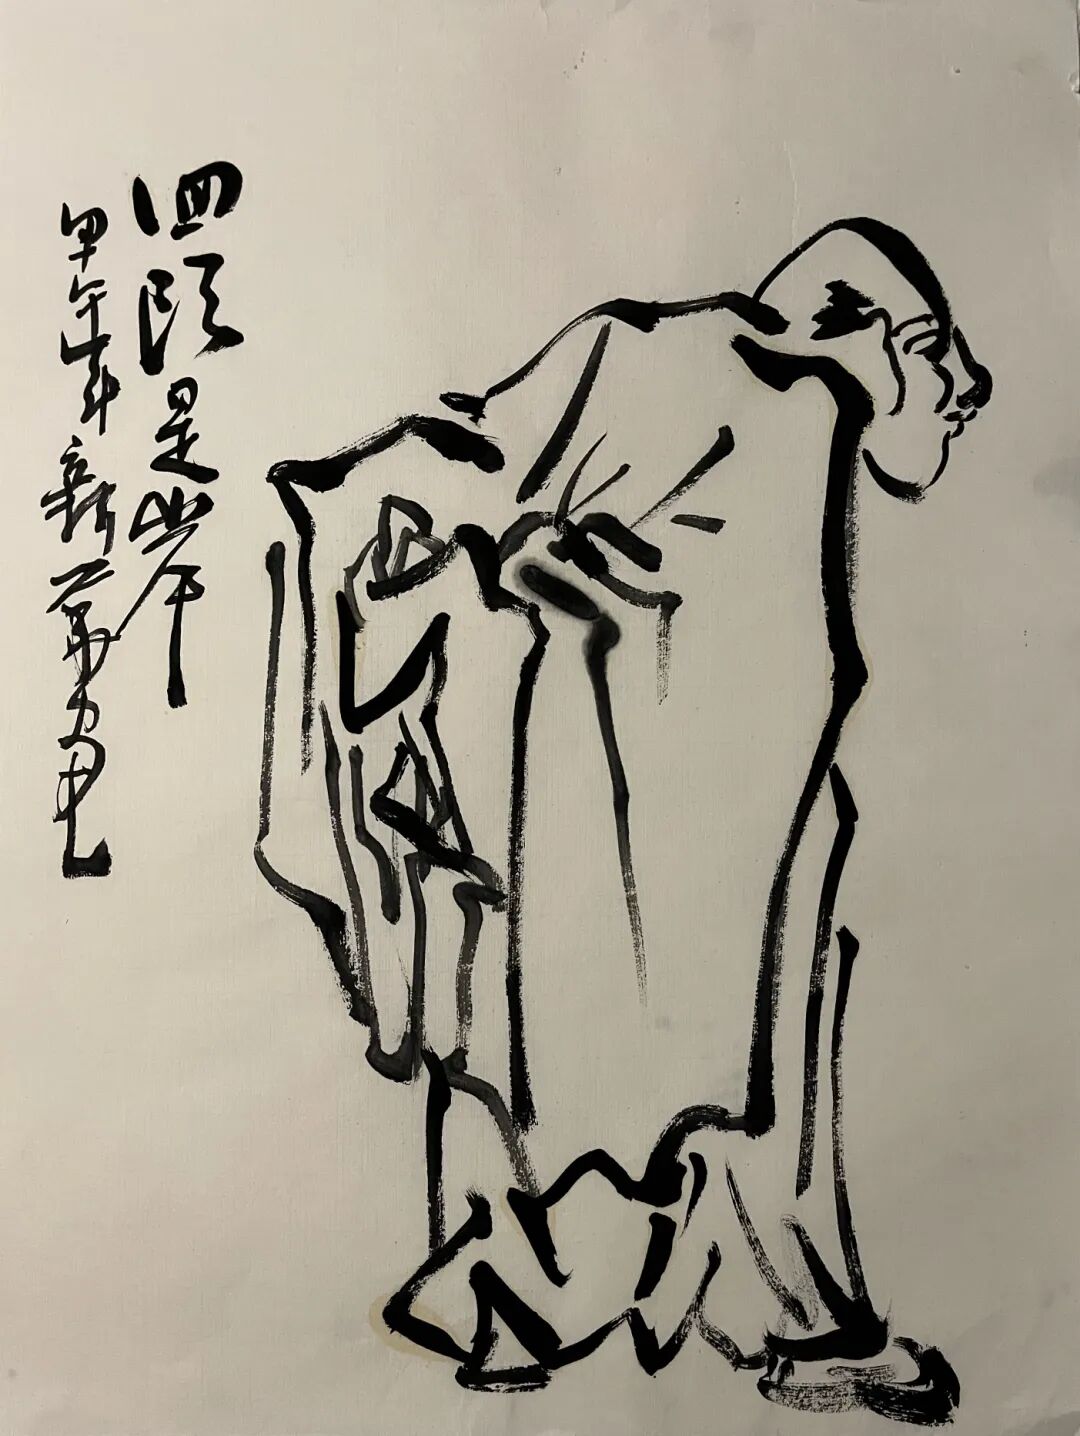 回头是岸
甲午年新華画